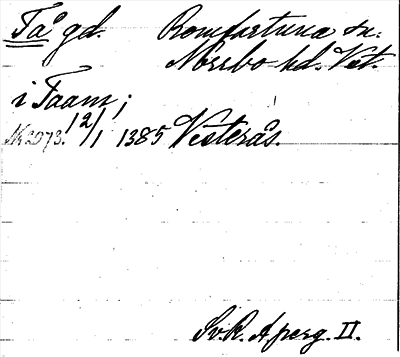 Tå gd. Romfartuna sn.
Norrbo hd. Vst.
i Taam;
N:2073. 12/1 1385 Vesterås.
Sv. R. A perg. II.